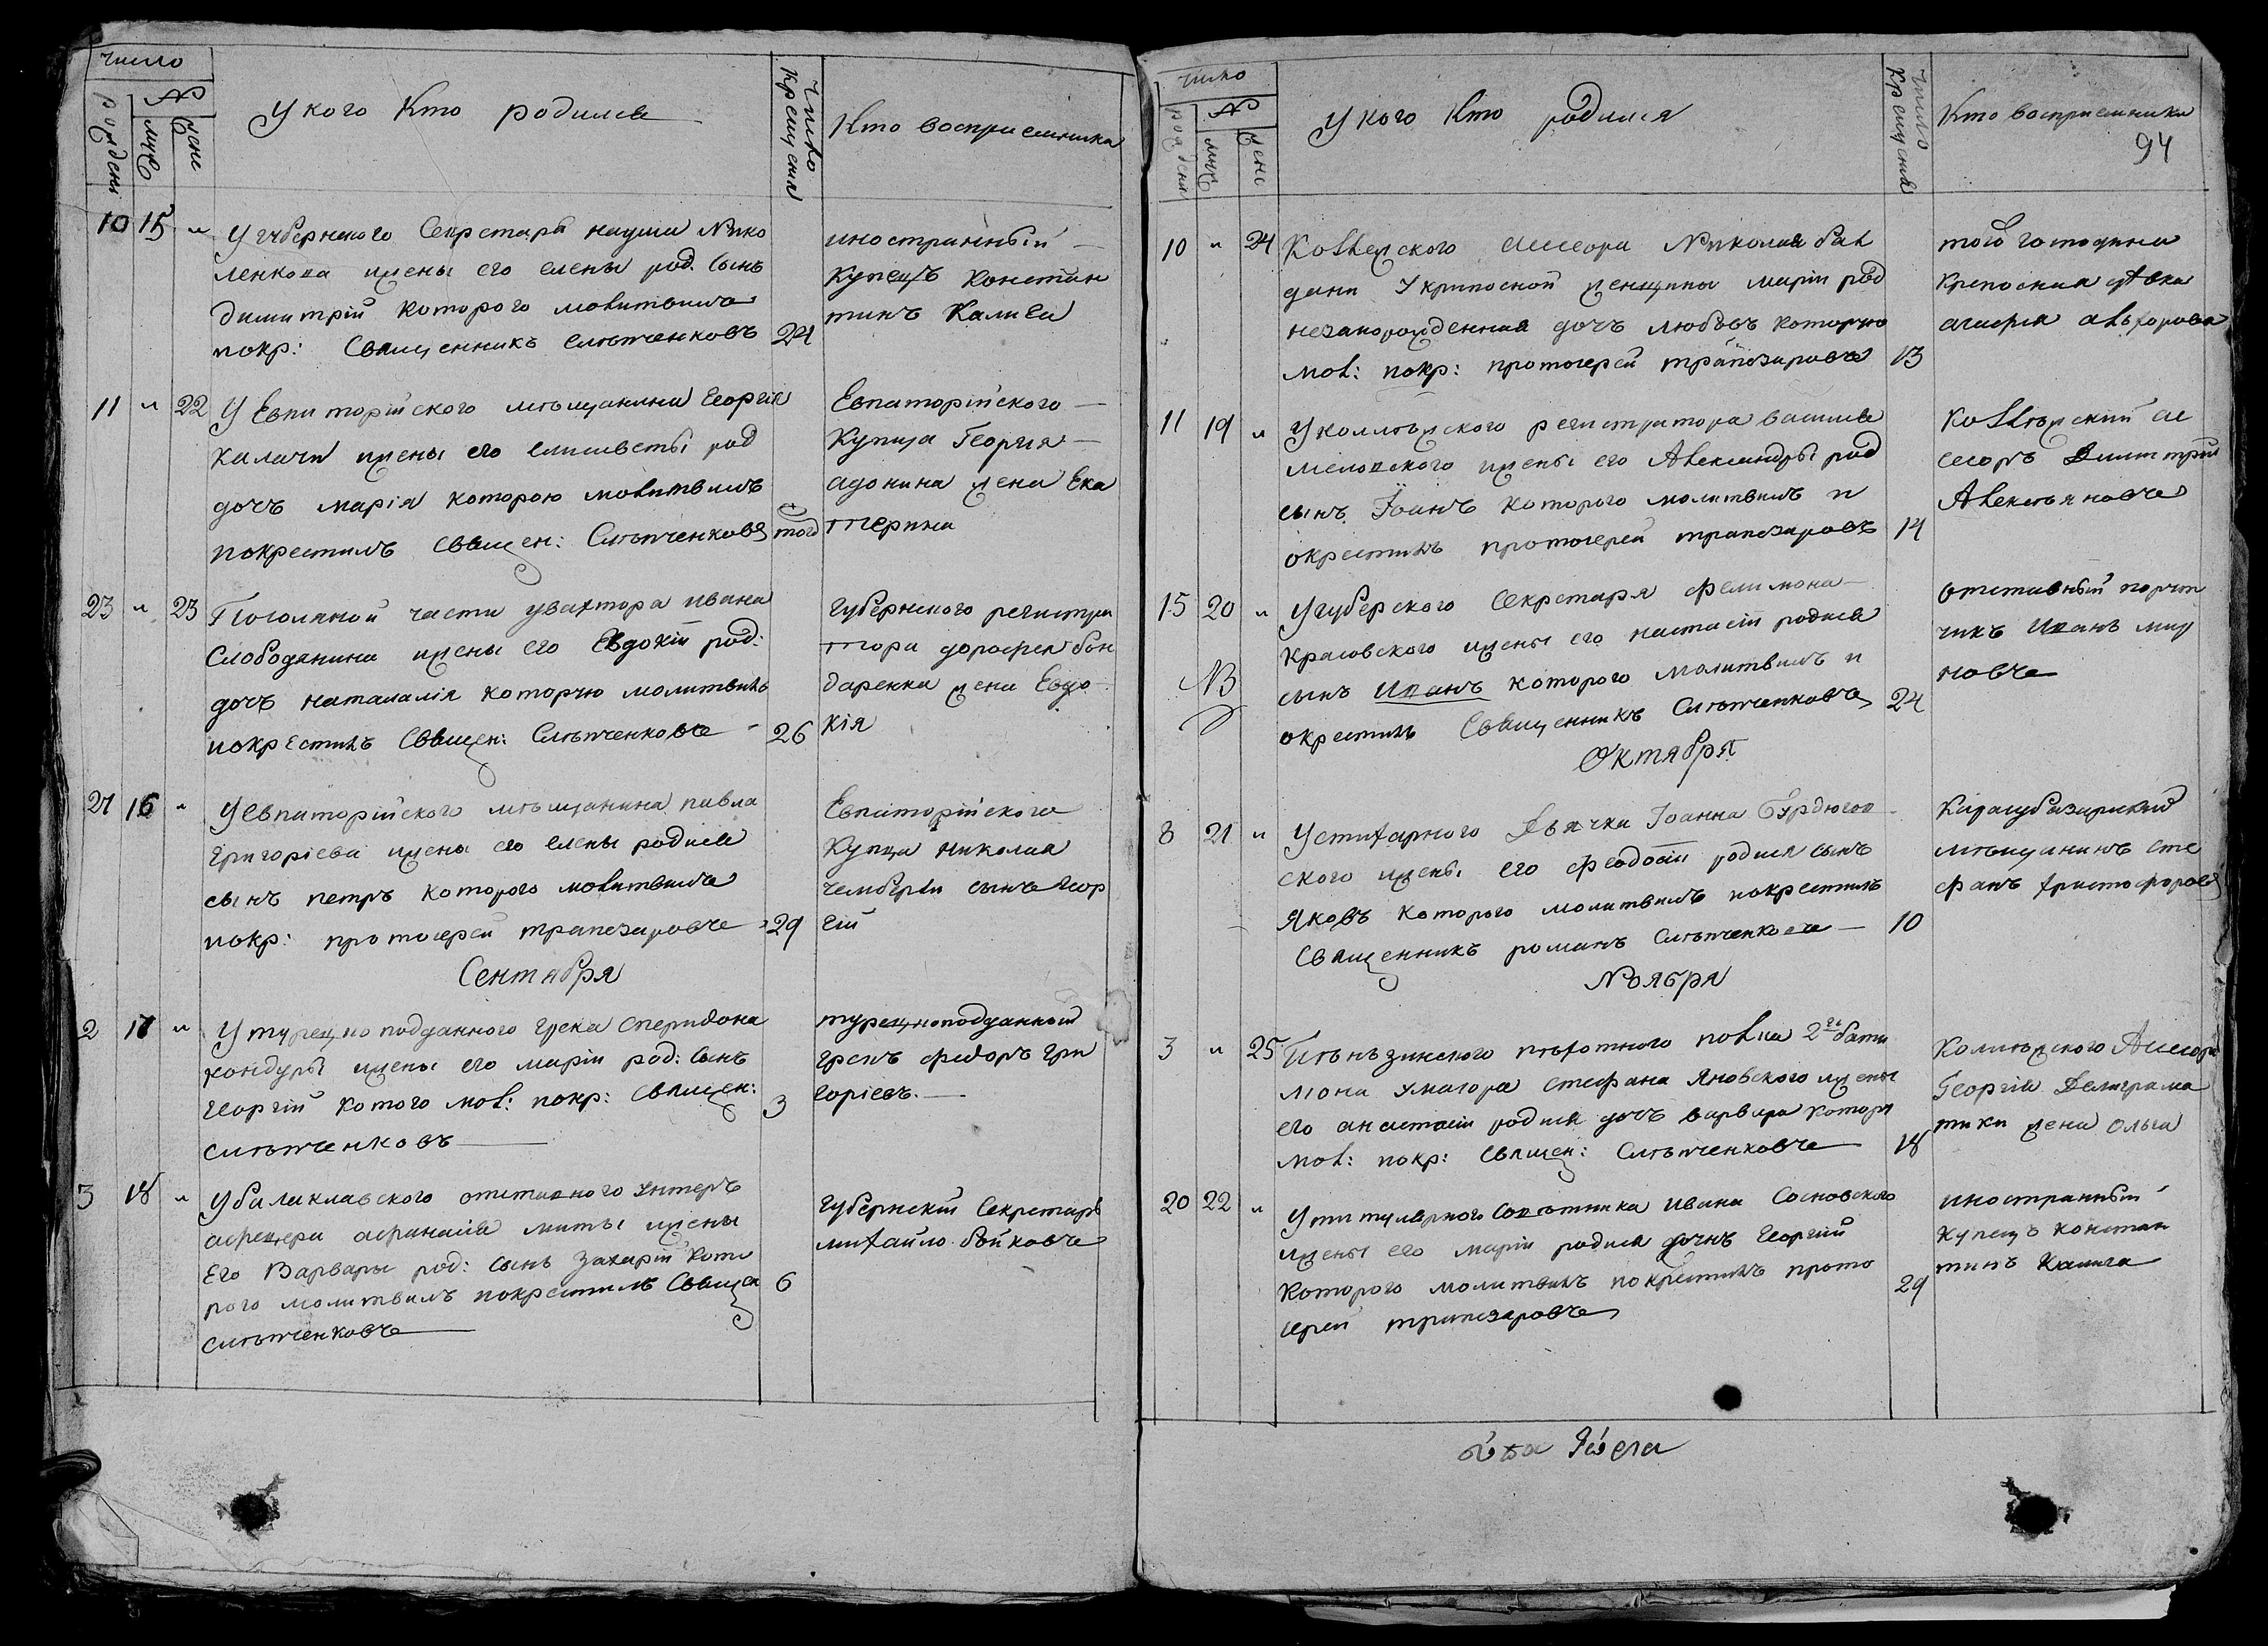 число
рождени
№
муж
жене
у кого кто родился
число
крещения
кто восприемники
10 15 " У губернского Секретаря наума Нико
ленкова жены его елены род. сынъ
димитрій которого молитвилъ
покр: Священникъ слѣпченковъ 24
иностранный
купецъ констан
тинъ Калига
11 " 22 У Евпаторійского мѣщанина Георгія
калачи жены его елисаветы род
дочъ марія которою молитвилъ
покрестилъ священ: Слѣпченковъ того
Евпаторійского
купца Георгия
адонина жена Ека
терина
23 " 23 части увахтора ивана
Слободянина жены его Евдокіи род:
дочъ наталалія которую молитвилъ
покрестилъ священ: Слѣпченковъ 26
губернского регистра
тора дорофея бон
даренка жена Евдо
кія
27 16 " У евпаторійского мѣщанина павла
григоріева жены его елены родился
сынъ петръ которого молитвилъ
покр: протоерей трапезаровъ 29
Евпаторійского
купца николая
сынъ Геор
гій
Сентября
2 17 " У турецко подданного грека спиридона
кондуры жены его маріи род: сынъ
георгій котого мол: покр: священ: 3
слѣпченковъ
турецкоподданный
грекъ фидоръ гри
горіевъ.
3 18 " У балаклавского отставного унтеръ
афецера афанасія жены
его Варвары род: сынъ Захарій кото
рого молитвилъ покрестилъ Священ 6
слѣпченковъ
губернскій Секретарь
михайло бойковъ
число
рождения
№
муж
жене
у кого кто родился
число
крещения
кто восприемники
94
10 " 24 Коллежского ассесора Николая бал
дани У крипосной женщины маріи род
незаконорожденная дочъ любовъ которую
мол: покр: протоерей трапезаровъ 13
того господина
крепосная дѣвка
агафія
11 19 " У коллѣжского регистратора василия
жены его Александры род
сынъ Іоанъ которого молитвилъ и
окрестилъ протоерей трапезаровъ 14
коллѣжский ас
сесоръ Димитрий
Алексіяновъ
15 20 " У губерского Секретаря филимона
красовского жены его настасіи родился
NB сынъ Иванъ которого молитвилъ и
окрестилъ Священникъ Слѣпченковъ 24
отставный поручи
чикъ Иванъ мир
новъ
Октября
8 21 " У стихарного Дьячка Іоанна Бурдюгов
ского жены его феодосіи родился сынъ
Яковъ которого молитвилъ покрестилъ
Священникъ романъ Слѣпченковъ 10
Карасубазарский
мѣщанинъ сте
фанъ христофоровъ
Ноября
3 " 25 пѣхотного полка 2го бата
лиона У маіора стефана Яновского жены
его анастасіи родился дочъ варвара котору
мол: покр: священ: Слѣпченковъ 18
Коллѣжского Ассесора
Георгія Делиграма
тики жена Ольга
20 22 " У титулярного Совѣтника ивана Сосновского
жены его маріи родился дочнъ Георгий
которого молитвилъ покрестилъ прото
ерей трапезаровъ 29
иностранный
купецъ констан
тинъ калига